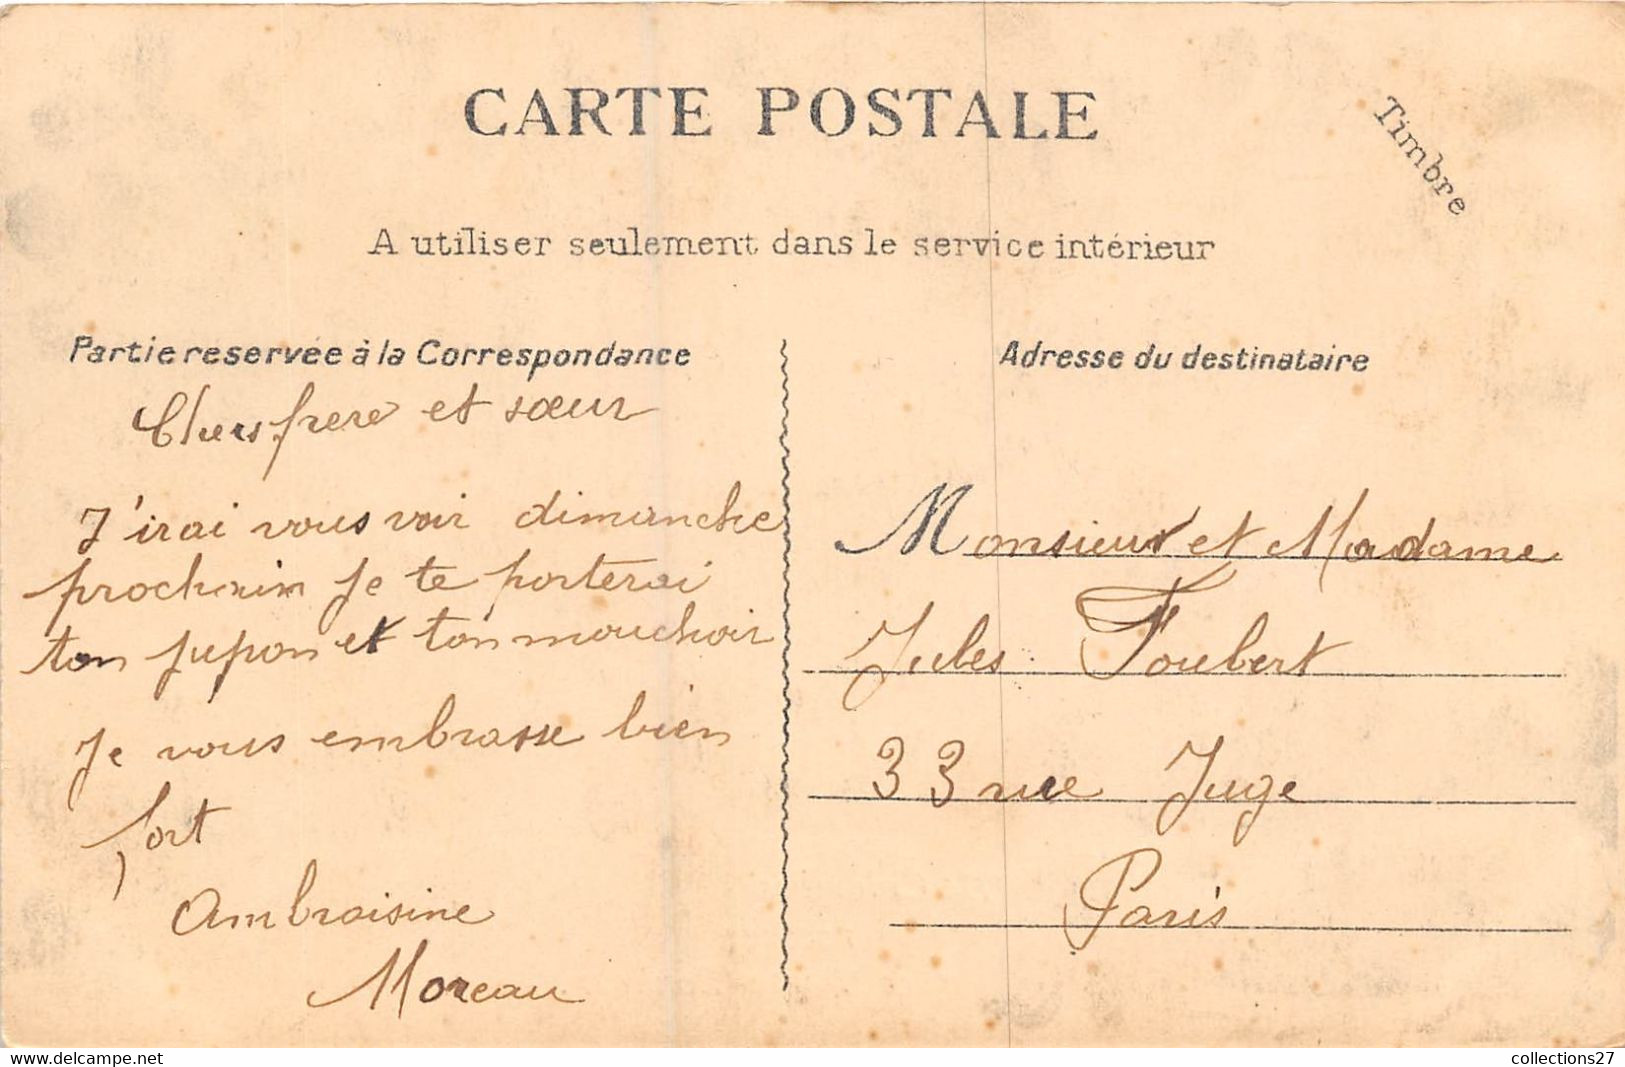 CARTE POSTALE
Timbre
A utiliser seulement dans le service intérieur
Partie reservée à la Correspondance
Chers frere et sœur
J'irai vous voir dimanche
prochain je te porterai
ton jupon et ton mouchoir
Je vous embrasse bien
fort
Ambroisine
Moreau
Adresse du destinataire
Monsieur et Madame
Jules Foubert
33 rue Juge
Paris
www.delcampe.net
collections27